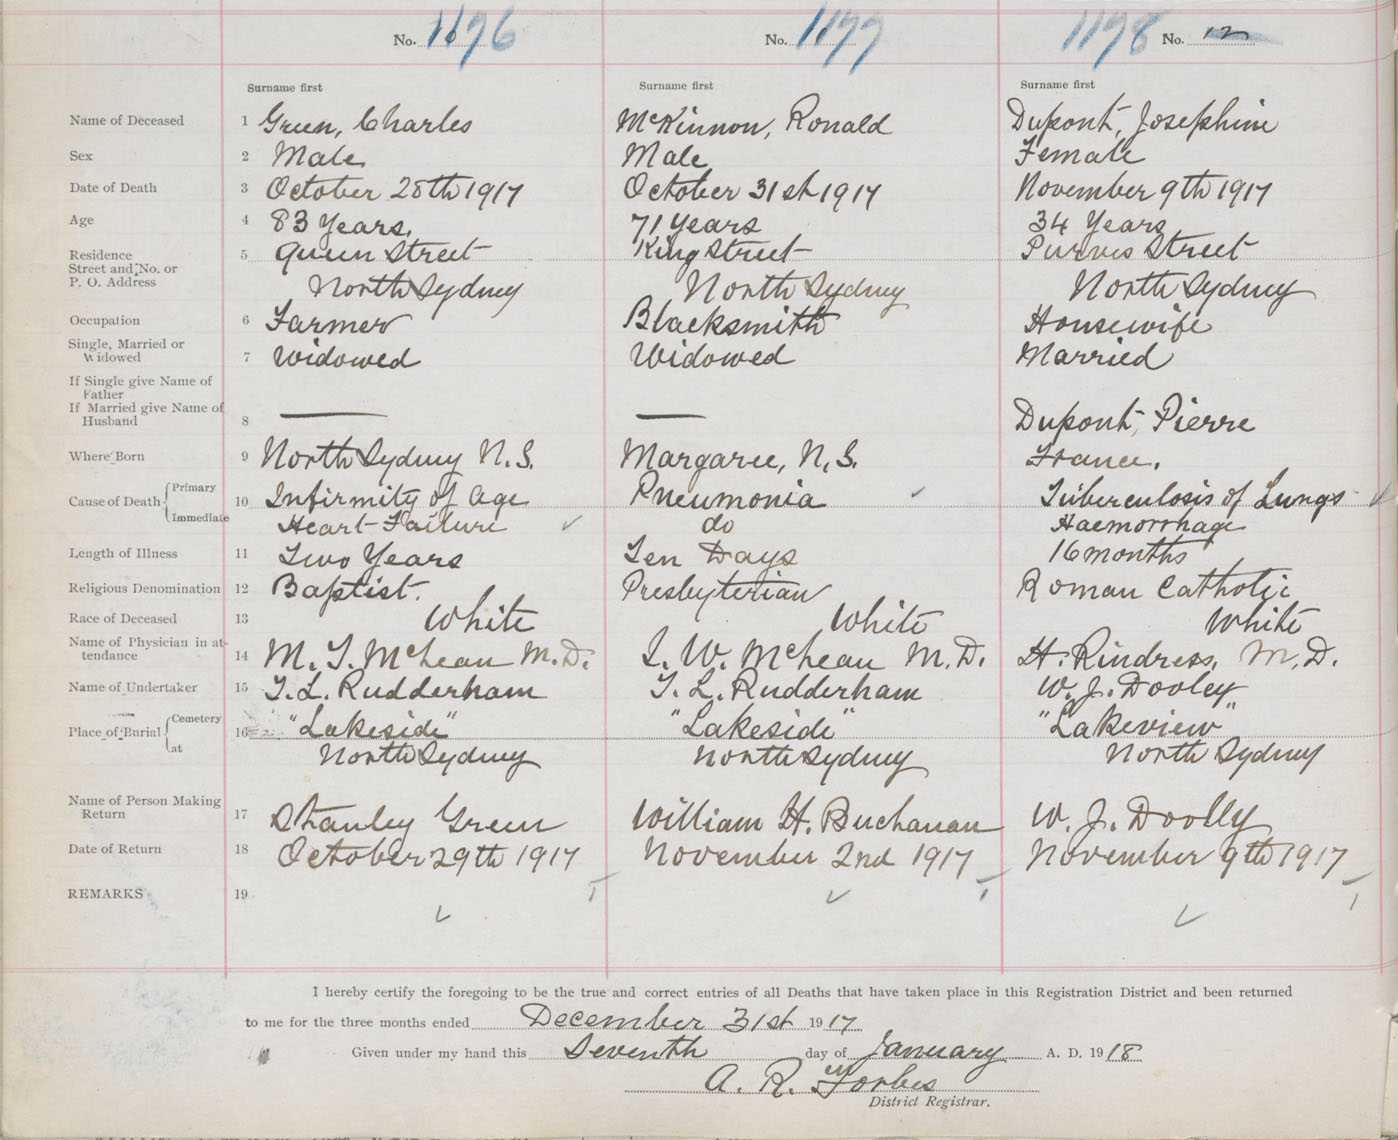 No. 1176 No. 1177 1178 No. 12
Surname first Surname first Surname first
Name of Deceased 1 Green, Charles McKinnon, Ronald Dupont, Josephine
Sex 2 Male Male Female
Date of Death 3 October 28th 1917 October 31st 1917 November 9th 1917
Age 4 83 Years. 71 Years 34 Years
Residence 5 Queen Street King Street Purves Street
Street and No. or
P. O. Address North Sydney North Sydney North Sydney
Occupation 6 Farmer Blacksmith Housewife
Single, Married or
Widowed 7 Widowed Widowed Married
If Single give Name of
Father
If Married give Name of
Husband 8 — — Dupont, Pierre
Where Born 9 North Sydney N.S. Margaree, N.S. France.
Cause of Death 10 Primary Infirmity of Age Pneumonia Tuberculosis of Lungs
Immediate Heart Failure do Haemorrhage
Length of Illness 11 Two Years Ten Days 16 months
Religious Denomination 12 Baptist. Presbyterian Roman Catholic
Race of Deceased 13 White White White
Name of Physician in at-
tendance 14 M. T. McLean M.D. J. W. McLean M.D. H. Rindress, M.D.
Name of Undertaker 15 T. L. Rudderham T. L. Rudderham W. J. Dooley
Place of Burial 16 Cemetery "Lakeside" "Lakeside" "Lakeview"
at North Sydney North Sydney North Sydney
Name of Person Making
Return 17 Stanley Green William H. Buchanan W. J. Doolly
Date of Return 18 October 29th 1917 November 2nd 1917 November 9th 1917
REMARKS 19
I hereby certify the foregoing to be the true and correct entries of all Deaths that have taken place in this Registration District and been returned
to me for the three months ended December 31st 1917
Given under my hand this Seventh day of January A. D. 1918
A. R. Forbes
District Registrar.